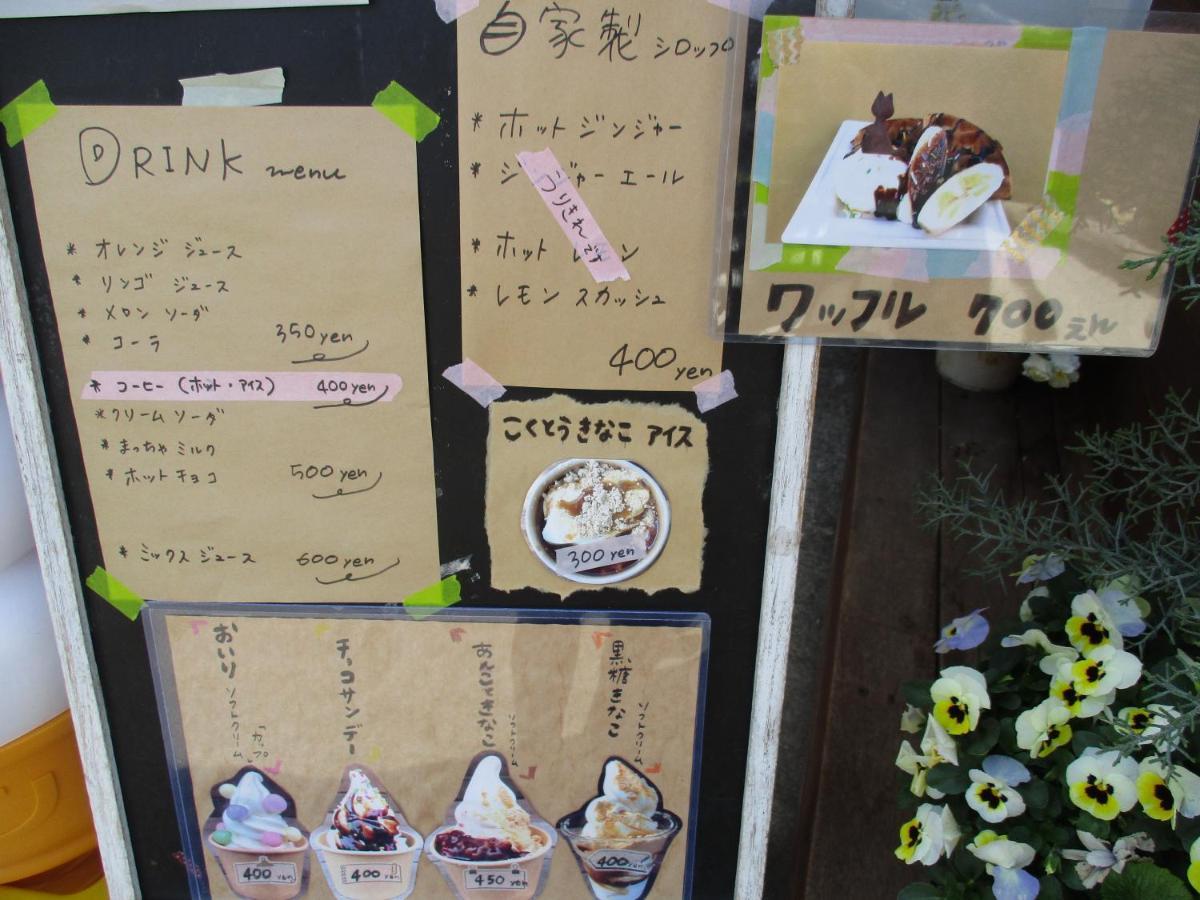 DRINK menu
* オレンジ ジュース
* リンゴ ジュース
* メロン ソーダ
* コーラ 350yen
* コーヒー (ホット・アイス) 400yen
* クリームソーダ
* まっちゃ ミルク
* ホットチョコ 500yen
* ミックス ジュース 600yen
自家製 シロップ
* ホット ジンジャー
* ジ ジャー エール
うりきれです
* ホット レモン
* レモン スカッシュ
400yen
ワッフル 700えん
こくとうきなこ アイス
300 yen
おいり ソフトクリーム
「カップ」
400 yen
チョコサンデー
400 yen
あんこときなこ ソフトクリーム
450 yen
黒糖きなこ ソフトクリーム
400 yen